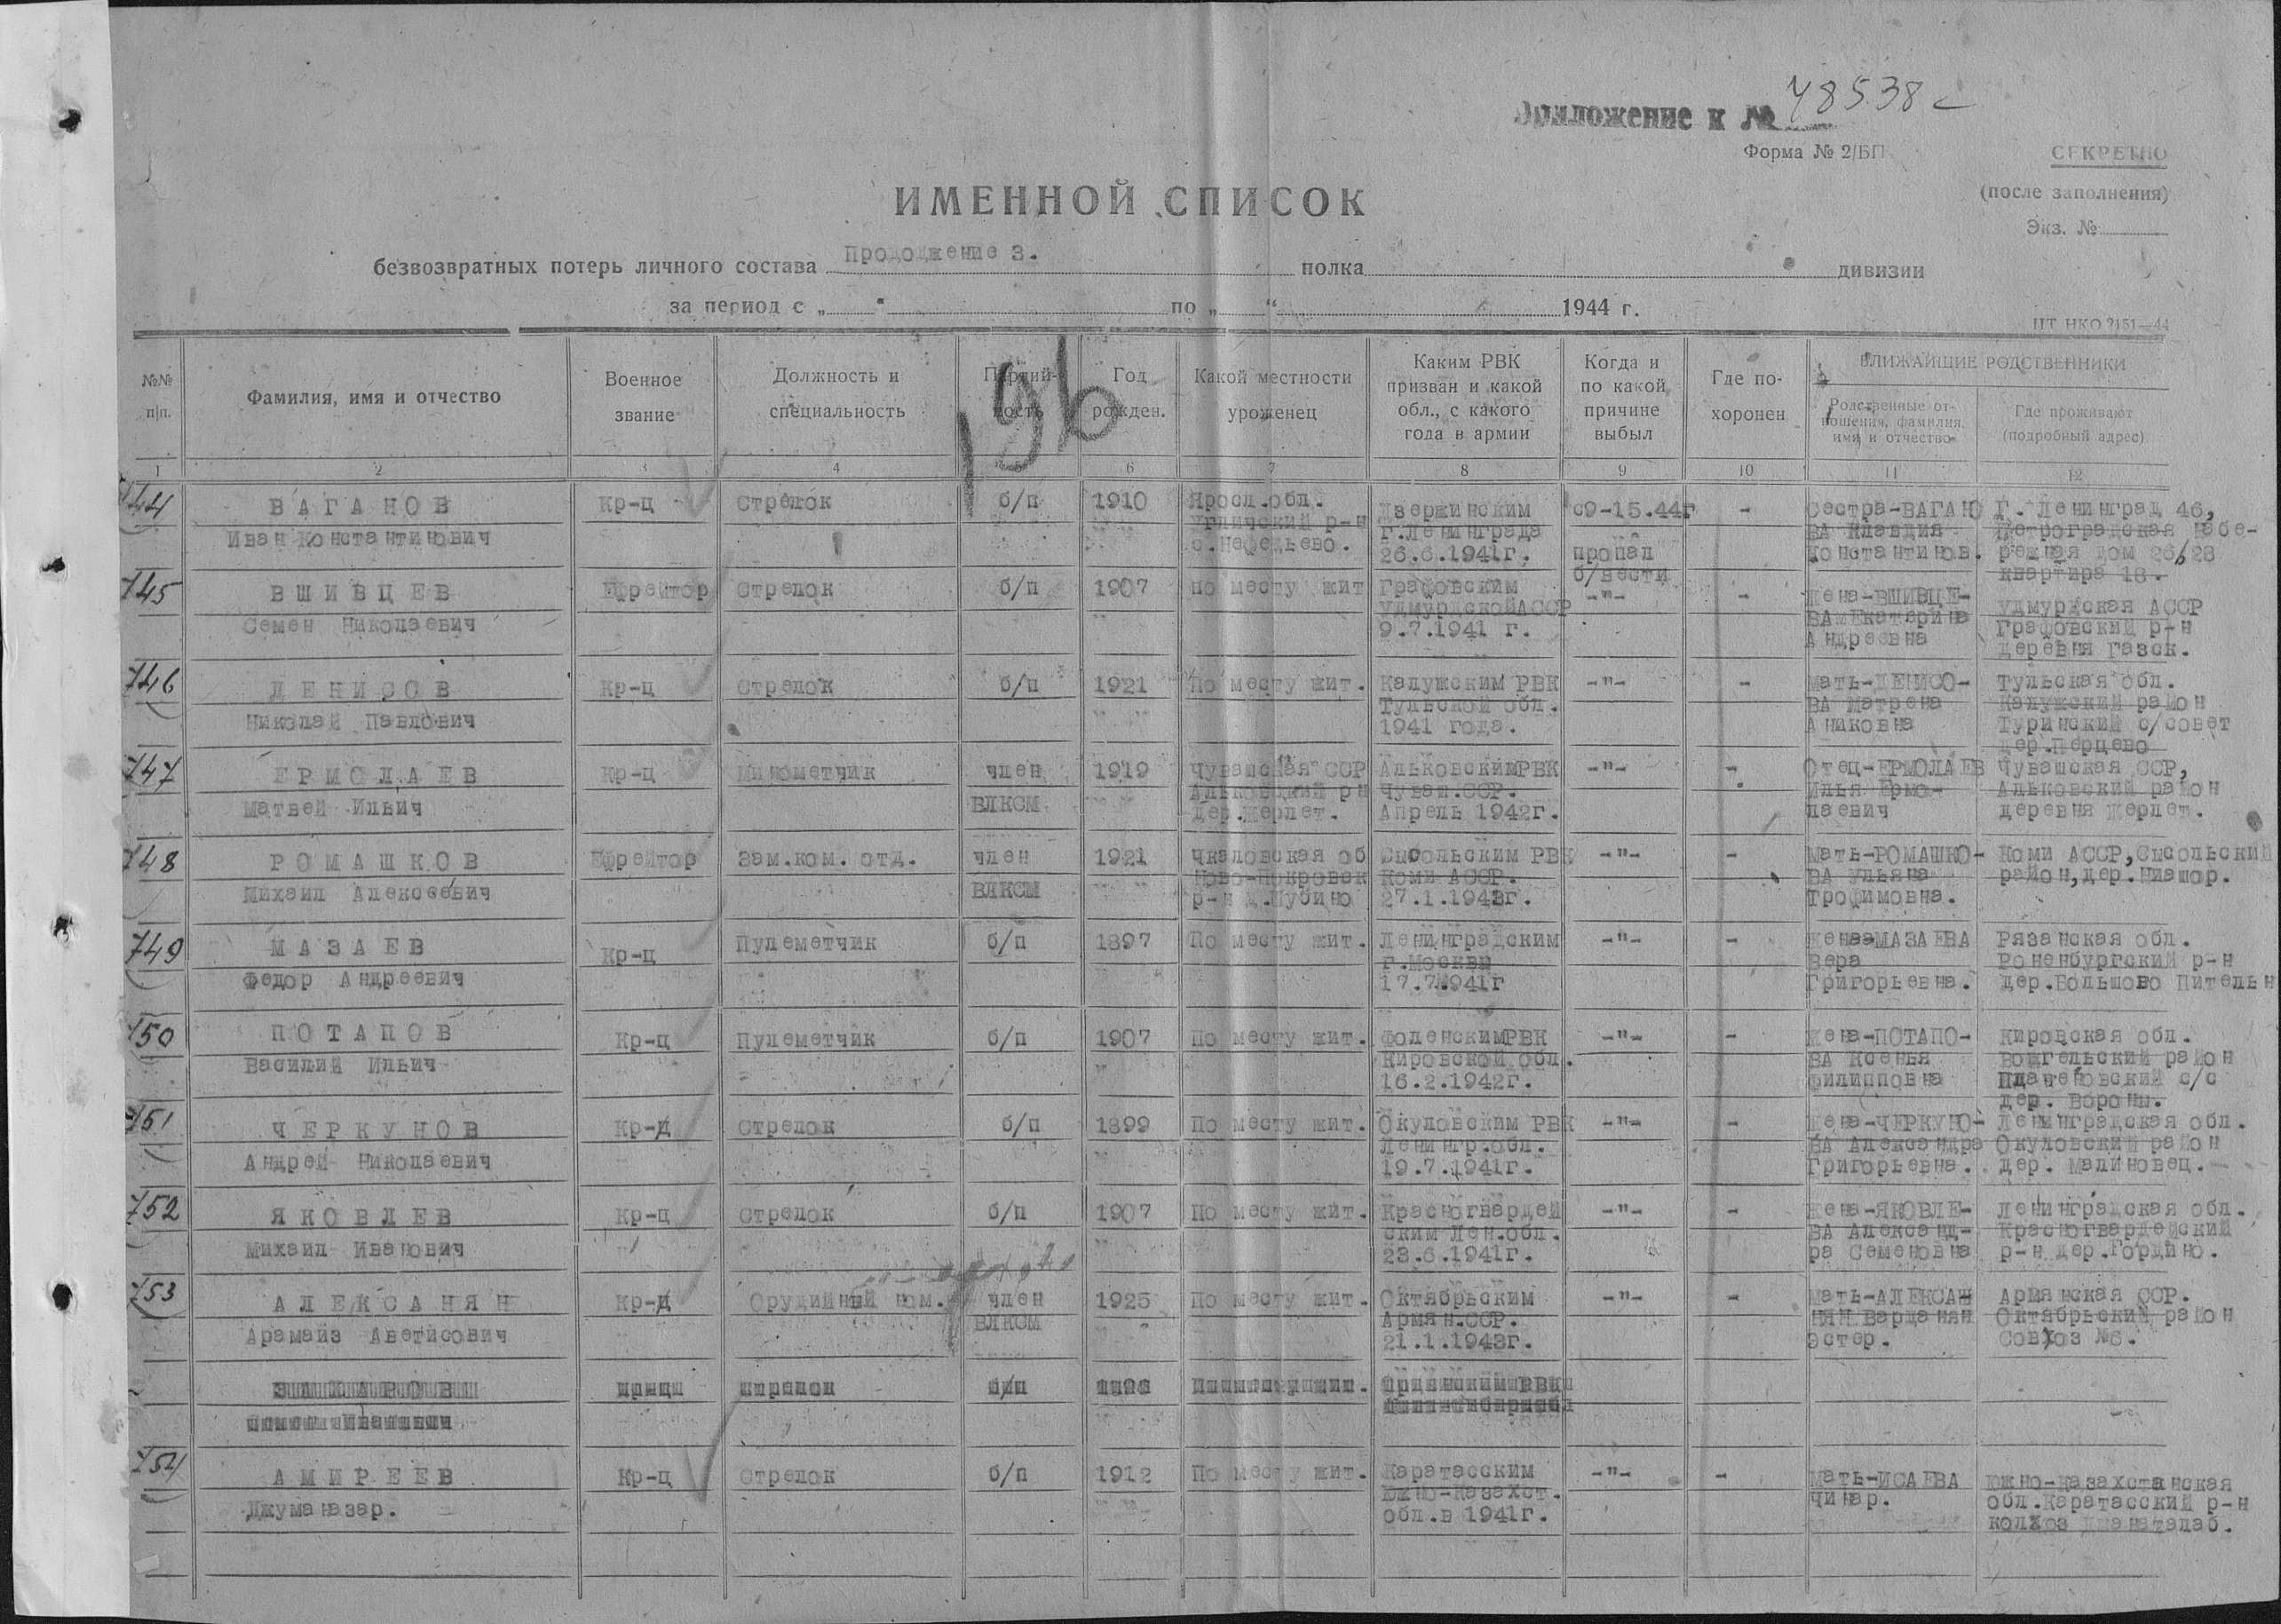 Приложение к № 78538с
Форма № 2/БП
СЕКРЕТНО
(после заполнения)
Экз. №
ИМЕННОЙ СПИСОК
безвозвратных потерь личного состава Продолжение 3. полка дивизии
за период с „ “ по „ “ 1944 г.
ЦТ НКО 2151—44
196
№№ п|п.
Фамилия, имя и отчество
Военное звание
Должность и специальность
Партий- ность
Год рожден.
Какой местности уроженец
Каким РВК призван и какой обл., с какого года в армии
Когда и по какой причине выбыл
Где по- хоронен
БЛИЖАЙШИЕ РОДСТВЕННИКИ
Родственные от- ношения, фамилия, имя и отчество
Где проживают (подробный адрес)
1 2 3 4 6 7 8 9 10 11 12
744 ВАГАНОВ Кр-ц Стрелок б/п 1910 Яросл.обл. Дзержинским с9-15.44г - Сестра-ВАГАНО Г. Ленинград 46,
Угличский р-н г.Ленинграда ВА Клавдия Петроградская набе-
Иван Константинович с.Нефедьево. 26.6.1941г. пропал Константинов. режная дом 26/28
б/вести квартира 18.
745 ВШИВЦЕВ Ефрейтор Стрелок б/п 1907 по месту жит Графовским -"- - Жена-ВШИВЦЕ- Удмуртская АССР
Семен Николаевич УдмурдскойАССР ВА Екатерина Графовский р-н
9.7.1941 г. Андреевна деревня Газек.
746 ДЕНИСОВ Кр-ц Стрелок б/п 1921 По месту жит. Калужским РВК -"- - Мать-ДЕНИСО- Тульская обл.
Тульской обл. ВА Матрена Калужский район
Николай Павлович 1941 года. Аниковна Туринский с/совет
дер.Перцево
747 ЕРМОЛАЕВ Кр-ц Минометчик член 1919 Чувашская ССР АльковскимРВК -"- - Отец-ЕРМОЛАЕВ Чувашская ССР,
Альковский рн Чуваш.ССР. Илья Ермо- Альковский район
Матвей Ильич ВЛКСМ Дер.Жерлет. Апрель 1942г. лаевич деревня Жерлет.
748 РОМАШКОВ Ефрейтор Зам.ком. отд. член 1921 Чкаловская об Сысольским РВК -"- - Мать-РОМАШКО- Коми АССР,Сысольский
Ново-Покровск Коми АССР. ВА Ульяна район,дер.Ниашор.
Михаил Алексеевич ВЛКСМ р-н д.Шубино 27.1.1943г. Трофимовна.
749 МАЗАЕВ Кр-ц Пулеметчик б/п 1897 По месту жит. Ленинградским -"- - Жена-МАЗАЕВА Рязанская обл.
г.Москвы Вера Роненбургский р-н
Федор Андреевич 17.7.1941г Григорьевна. дер.Большово Пительн
750 ПОТАПОВ Кр-ц Пулеметчик б/п 1907 По месту жит. ФоленскимРВК -"- - Жена-ПОТАПО- Кировская обл.
Кировской обл. ВА Ксенья Вожгельский район
Василий Ильич 16.2.1942г. Филипповна с/с
дер. Вороны.
751 ЧЕРКУНОВ Кр-ц Стрелок б/п 1899 По месту жит. Окуловским РВК -"- - Жена-ЧЕРКУНО- Ленинградская обл.
Ленингр.обл. ВА Александра Окуловский район
Андрей Николаевич 19.7.1941г. Григорьевна. дер. Малиновец.
752 ЯКОВЛЕВ Кр-ц Стрелок б/п 1907 По месту жит. Красногвардей -"- - Жена-ЯКОВЛЕ- Ленинградская обл.
ским Лен.обл. ВА Александ- Красногвардейский
Михаил Иванович 23.6.1941г. ра Семеновна р-н дер.Гордино.
753 АЛЕКСАНЯН Кр-ц Орудийный ном. член 1925 По месту жит. Октябрьским -"- - Мать-АЛЕКСАН Армянская ССР.
ВЛКСМ Армян.ССР. НЯН Варданян Октябрьский район
Арамаиз Аветисович 21.1.1943г. Эстер. Совхоз №6.
754 АМИРЕЕВ Кр-ц Стрелок б/п 1912 По месту жит. Каратасским -"- - Мать-ИСАЕВА Южно-Казахстанская
Южно-Казахст. Чинар. обл.Каратасский р-н
Джуманазар. обл.в 1941г. колхоз Джанаталаб.